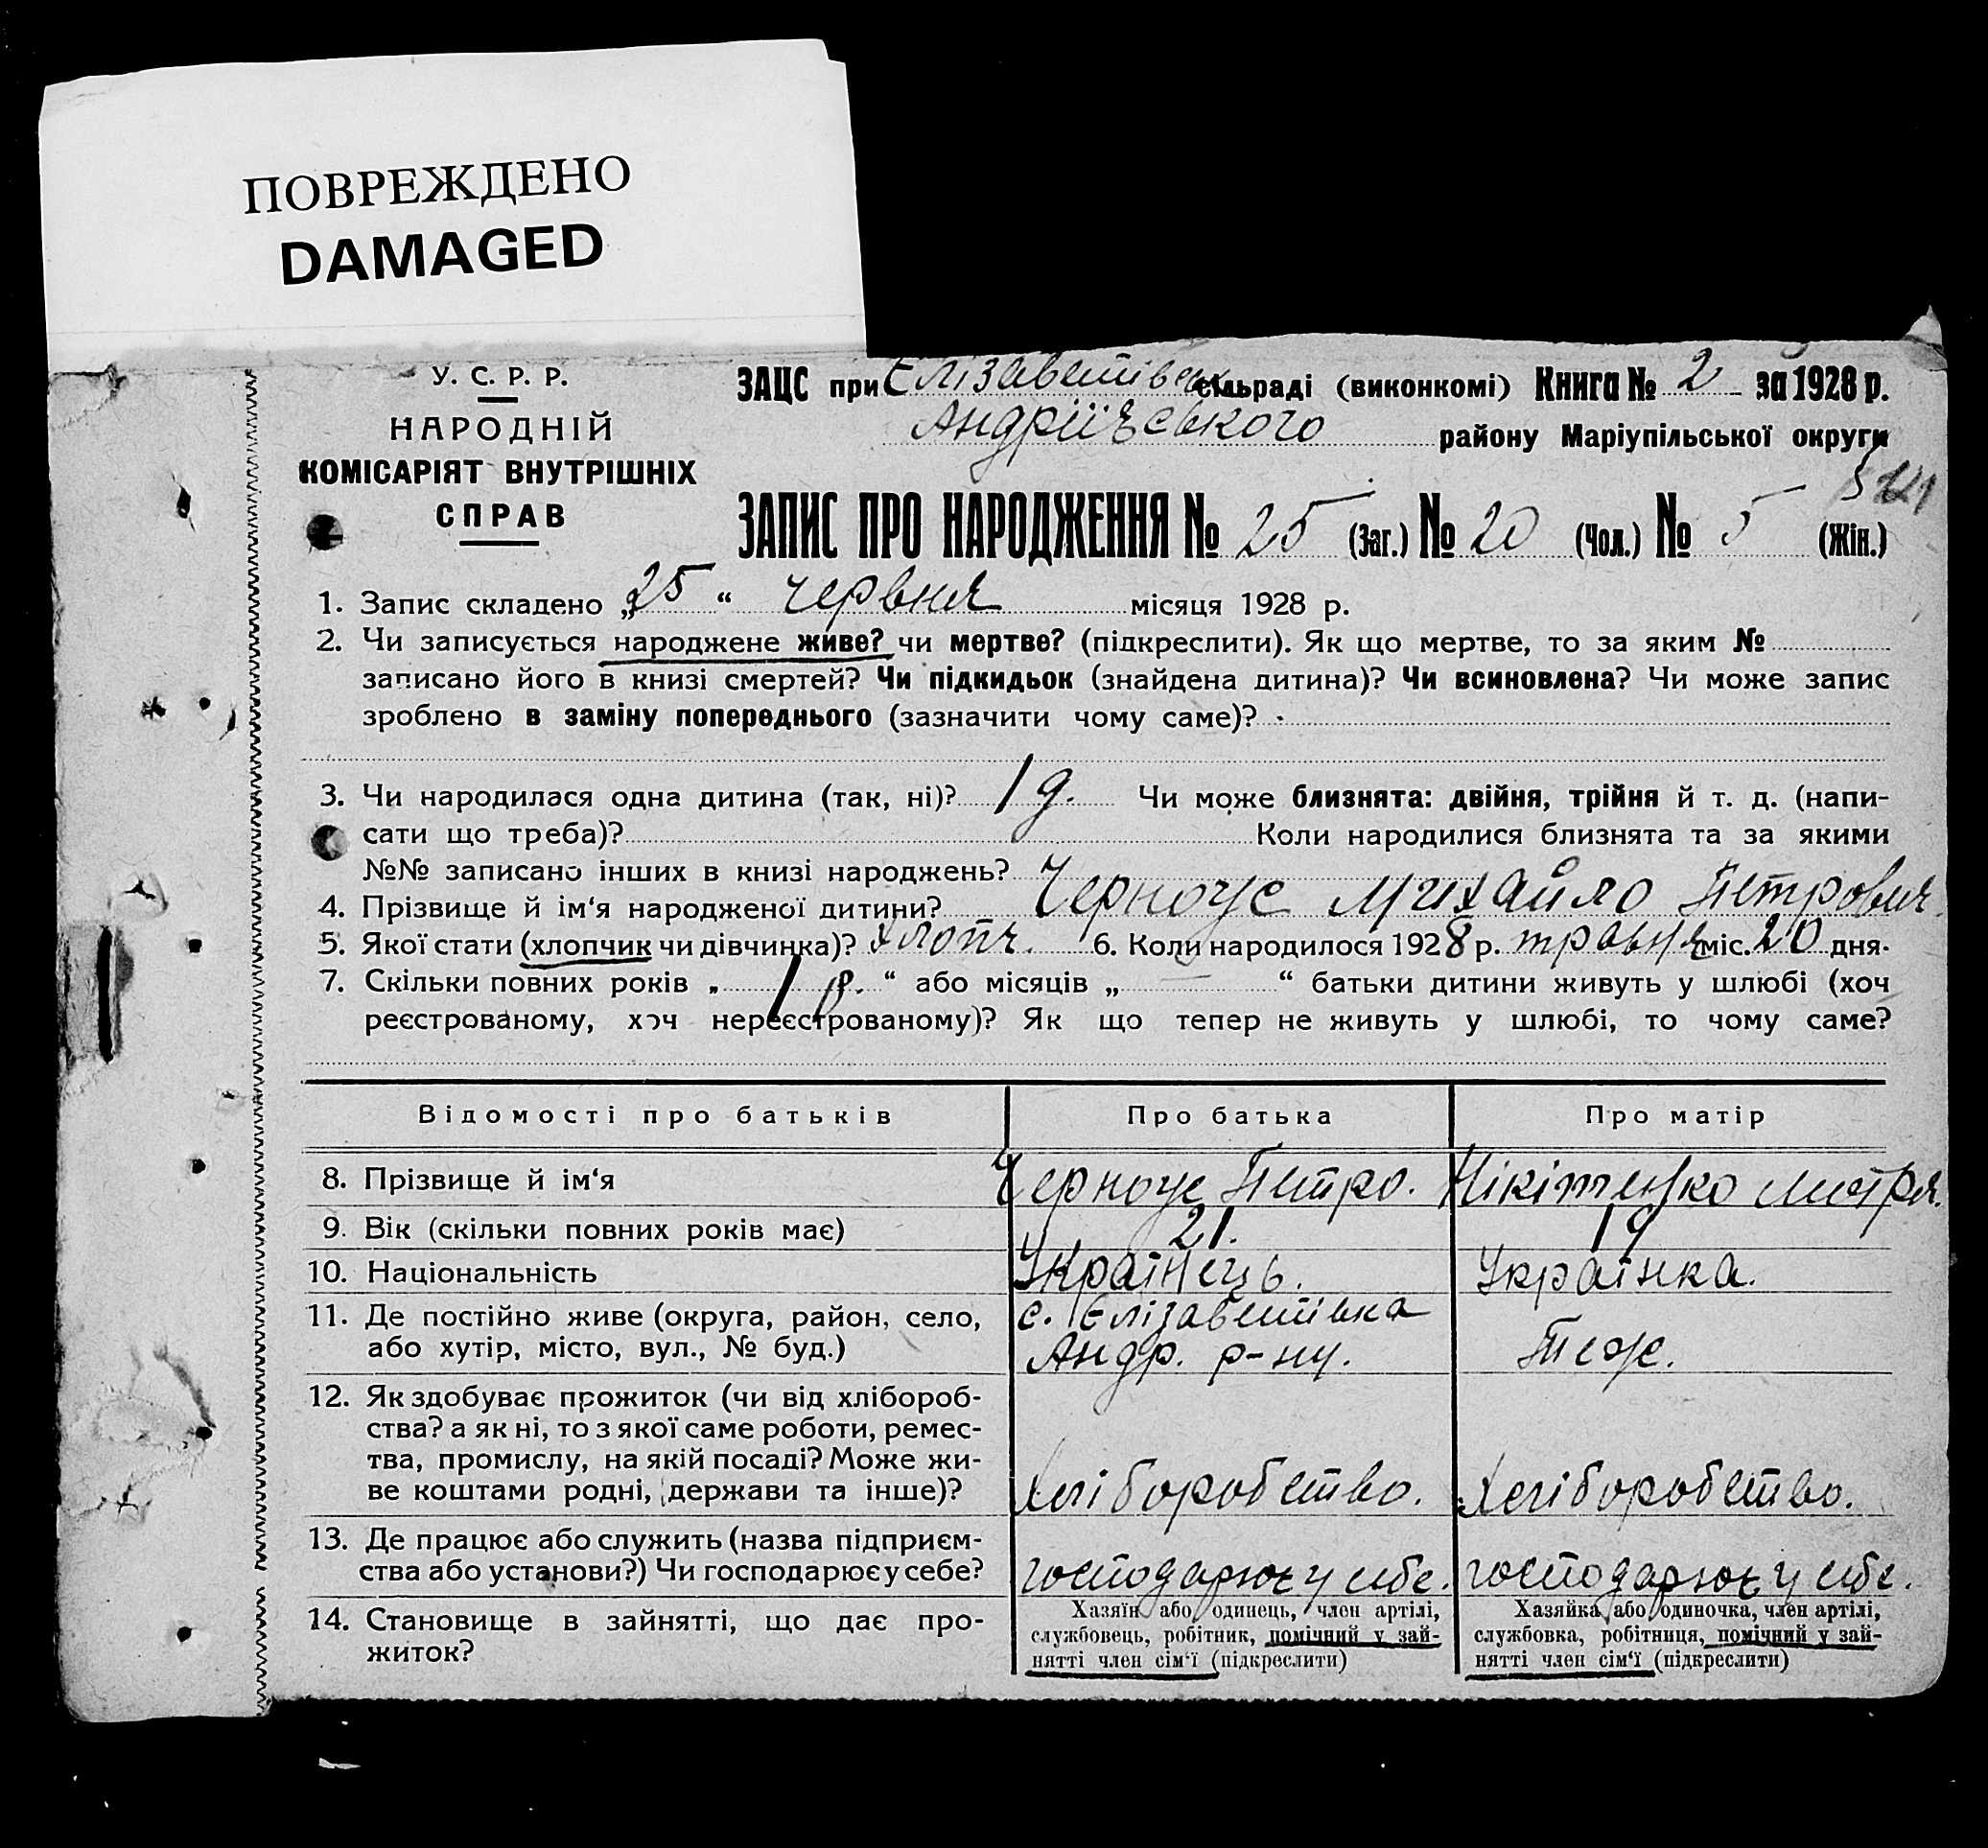 ПОВРЕЖДЕНО
DAMAGED
У. С. Р. Р.
НАРОДНІЙ
КОМІСАРІЯТ ВНУТРІШНІХ
СПРАВ
ЗАЦС при Єлізаветівськ сільраді (виконкомі) Книга № 2 за 1928 р.
Андріївського району Маріупільської округи
ЗАПИС ПРО НАРОДЖЕННЯ № 25 (Заг.) № 20 (Чол.) № 5 (Жін.)
1. Запис складено „25“ червня місяця 1928 р.
2. Чи записується народжене живе? чи мертве? (підкреслити). Як що мертве, то за яким №
записано його в книзі смертей? Чи підкидьок (знайдена дитина)? Чи всиновлена? Чи може запис
зроблено в заміну попереднього (зазначити чому саме)?
3. Чи народилася одна дитина (так, ні)? 1 д. Чи може близнята: двійня, трійня й т. д. (напи-
сати що треба)? Коли народилися близнята та за якими
№№ записано інших в книзі народжень?
4. Прізвище й ім‘я народженої дитини? Черноус Михайло Петрович
5. Якої стати (хлопчик чи дівчинка)? хлопч. 6. Коли народилося 1928 р. травня міс. 20 дня.
7. Скільки повних років „ 1 р. “ або місяців „ — “ батьки дитини живуть у шлюбі (хоч
реєстрованому, хоч нереєстрованому)? Як що тепер не живуть у шлюбі, то чому саме?
Відомості про батьків Про батька Про матір
8. Прізвище й ім‘я Черноус Петро. Нікітенко
9. Вік (скільки повних років має) 21. 19
10. Національність Українець. Українка.
11. Де постійно живе (округа, район, село,
або хутір, місто, вул., № буд.)
с. Єлізаветівка
Андр. р-ну.
Теж.
12. Як здобуває прожиток (чи від хлібороб-
ства? а як ні, то з якої саме роботи, ремес-
тва, промислу, на якій посаді? Може жи-
ве коштами родні, держави та інше)?
Хліборобство. Хліборобство.
13. Де працює або служить (назва підприєм-
ства або установи?) Чи господарює у себе?
господарює у себе. господарює у себе.
14. Становище в зайнятті, що дає про-
житок?
Хазяїн або одинець, член артілі,
службовець, робітник, помічний у зай-
нятті член сім‘ї (підкреслити)
Хазяйка або одиночка, член артілі,
службовка, робітниця, помічний у зай-
нятті член сім‘ї (підкреслити)